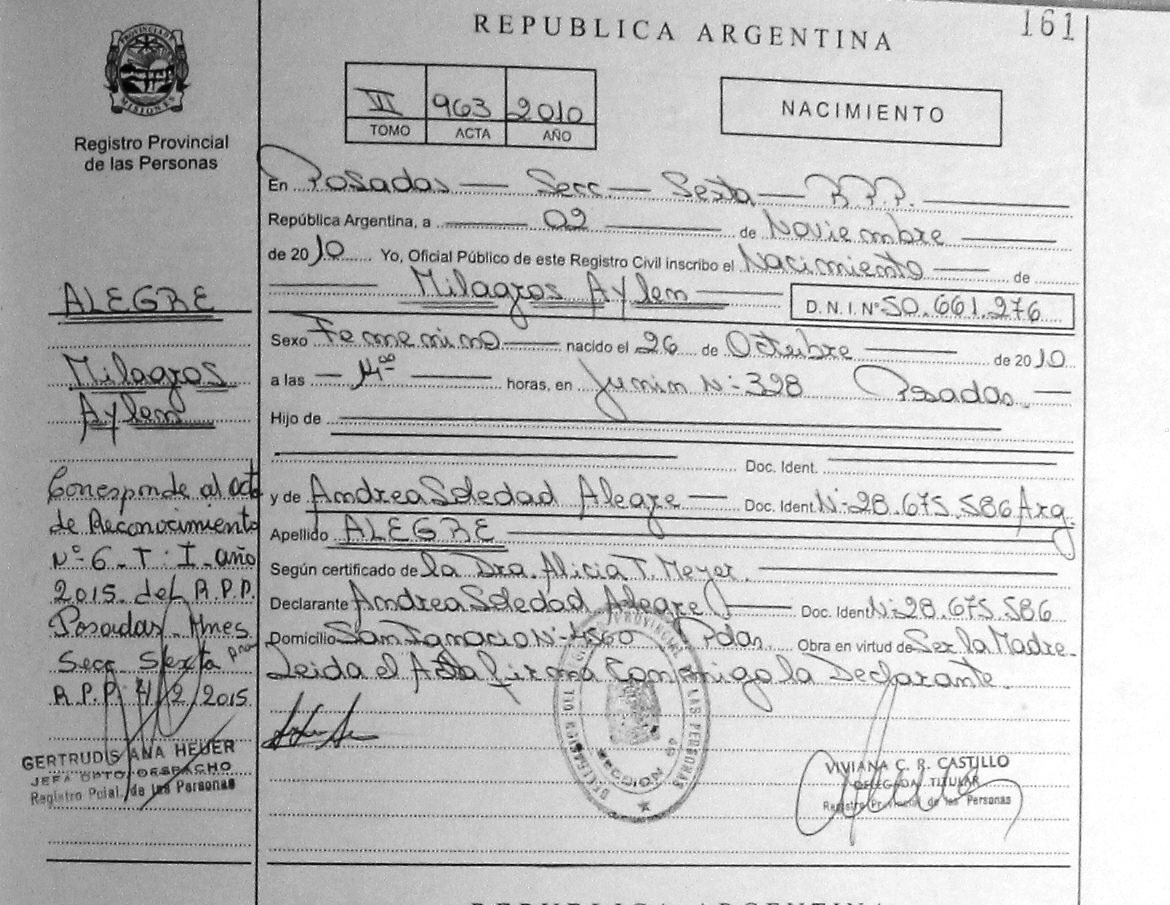 REPUBLICA ARGENTINA
161
PROVINCIA DE MISIONES
Registro Provincial
de las Personas
VI 963 2010
TOMO ACTA AÑO
NACIMIENTO
En Posadas Secc Sexta R.P.P.
República Argentina, a 02 de Noviembre
de 2010 Yo, Oficial Público de este Registro Civil inscribo el Nacimiento de
Milagros Aylen D.N.I. Nº 50.661.276
Sexo Femenino nacido el 26 de Octubre de 2010
a las horas, en Junin Nº 398 Posadas.
Hijo de
Doc. Ident.
y de Andrea Soledad Alegre Doc. Ident. Nº 28.675.586 Arg.
Apellido ALEGRE
Según certificado de la Dra. Alicia T. Meyer.
Declarante Andrea Soledad Alegre Doc. Ident. Nº 28.675.586
Domicilio San Ignacio Nº 4560 Pdas. Obra en virtud de Ser la Madre.
Leida el Acta firma Conmigo la Declarante.
ALEGRE
Milagros
Aylen
Corresponde al acta
de Reconocimiento
Nº 6 T: I año
2015 del R.P.P.
Posadas Mnes
Secc Sexta
R.P.P. 4/2/2015
GERTRUDIS ANA HEUER
JEFA DPTO. DESPACHO
Registro Pcial. de las Personas
PROVINCIAL DE LAS PERSONAS
VIVIANA C. R. CASTILLO
DELEGADA TITULAR
Registro Provincial de las Personas
REPUBLICA ARGENTINA